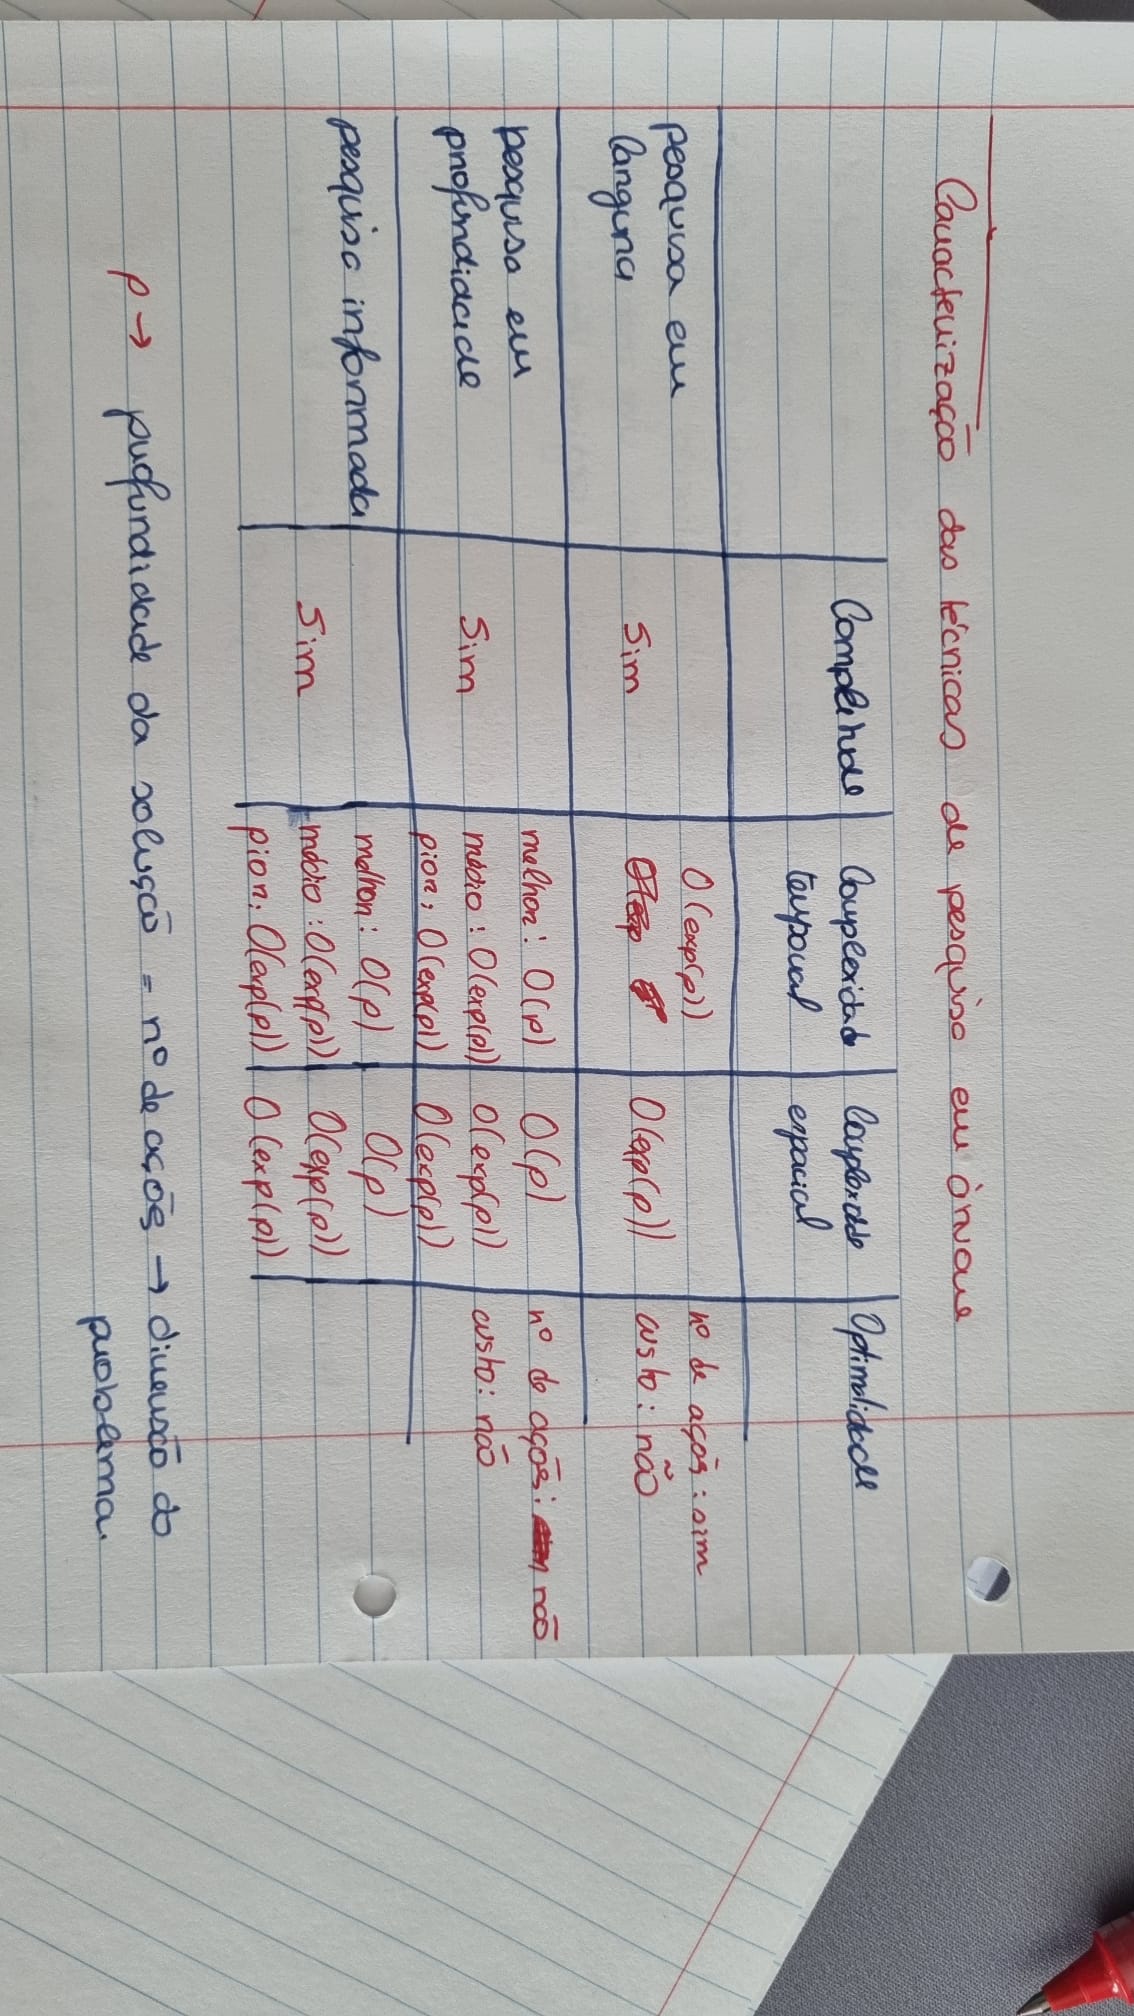 Caracterização das técnicas de pesquisa em árvore
Completude Complexidade temporal Complexidade espacial Optimalidade
pesquisa em largura Sim O(exp(p)) O(exp(p)) nº de ações: sim
custo: não
pesquisa em profundidade Sim melhor: O(p) O(p) nº de ações: não
médio: O(exp(p)) O(exp(p)) custo: não
pior: O(exp(p)) O(exp(p))
pesquisa informada Sim melhor: O(p) O(p)
médio: O(exp(p)) O(exp(p))
pior: O(exp(p)) O(exp(p))
p → profundidade da solução = nº de ações → dimensão do
problema.